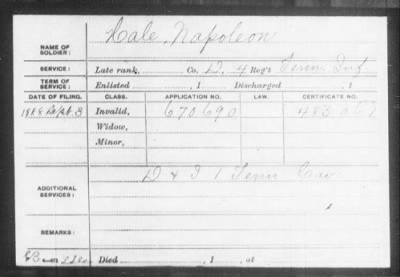 Hale, Napoleon
NAME OF
SOLDIER:
SERVICE: Late rank, Co. D, 4 Reg't Tenn Inf
TERM OF
SERVICE: Enlisted , 1 Discharged , 1
DATE OF FILING. CLASS. APPLICATION NO. LAW. CERTIFICATE NO.
1888 Sept 3 Invalid, 670690 485
Widow,
Minor,
D & I 1 Tenn Cav
ADDITIONAL
SERVICES:
REMARKS:
Died , 1 , at